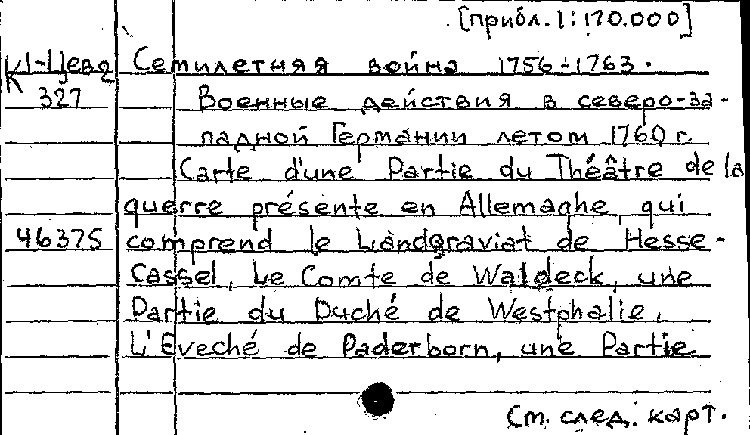 [прибл. 1:170.000]
К1-Цевд Семилетняя война 1756-1763.
327 Военные действия в северо-за-
падной Германии летом 1760 г.
Carte d'une Partie du Théâtre de la
guerre présente en Allemaghe, qui
46375 comprend le Landgraviat de Hesse-
Cassel, Le Comte de Waldeck, une
Partie du Duché de Westphalie,
L'Eveché de Paderborn, une Partie
См. след. карт.